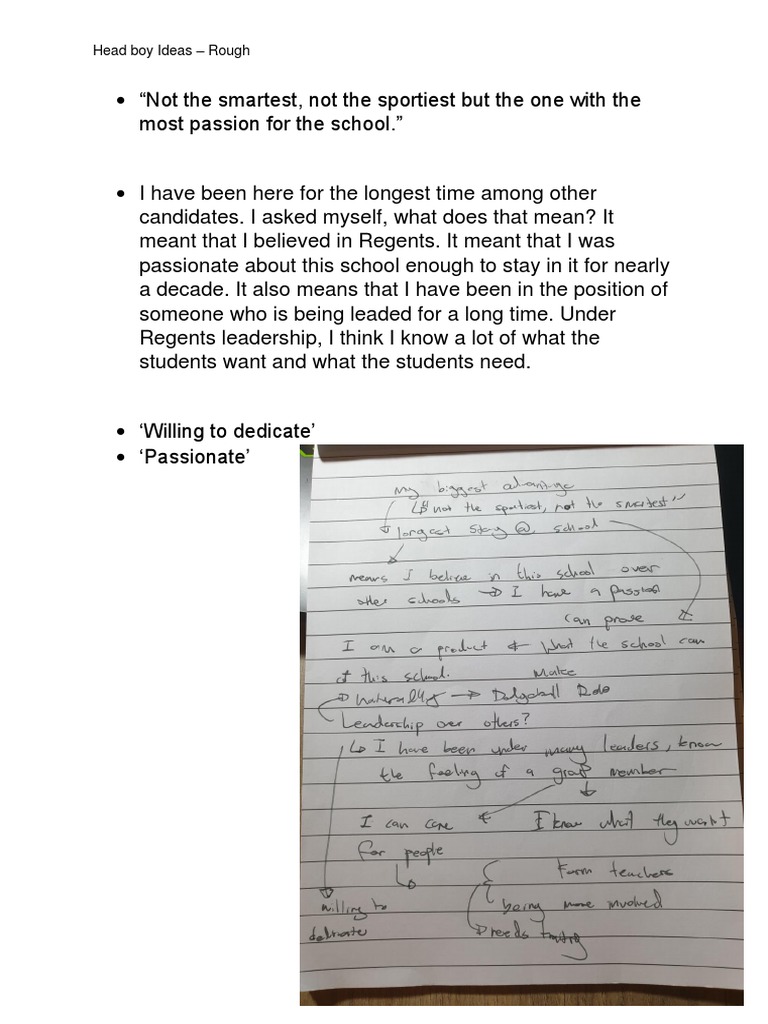 Head boy Ideas – Rough
• “Not the smartest, not the sportiest but the one with the
most passion for the school.”
• I have been here for the longest time among other
candidates. I asked myself, what does that mean? It
meant that I believed in Regents. It meant that I was
passionate about this school enough to stay in it for nearly
a decade. It also means that I have been in the position of
someone who is being leaded for a long time. Under
Regents leadership, I think I know a lot of what the
students want and what the students need.
• ‘Willing to dedicate’
• ‘Passionate’
My biggest advantage
↳ "not the sportiest, not the smartest"
longest stay @ school
means I believe in this school over
other schools → I have a passion
can prove
I am a product
of this school.
What the school can
make
→ Dodgeball
Leadership over others?
↳ I have been under many leaders, know
the feeling of a group member
I can care
for people
I know what they want
Form teachers
being more involved
needs
willing to